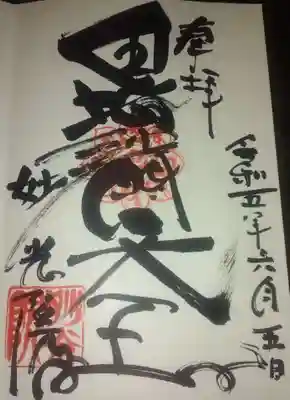 奉拝
令和五年六月五日
毘沙門天王
妙光院